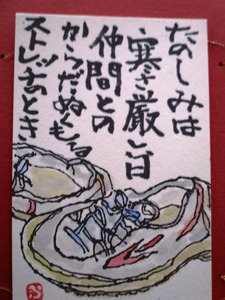 たのしみは
寒さ厳しい日
仲間との
からだぬくもる
ストレッチのとき